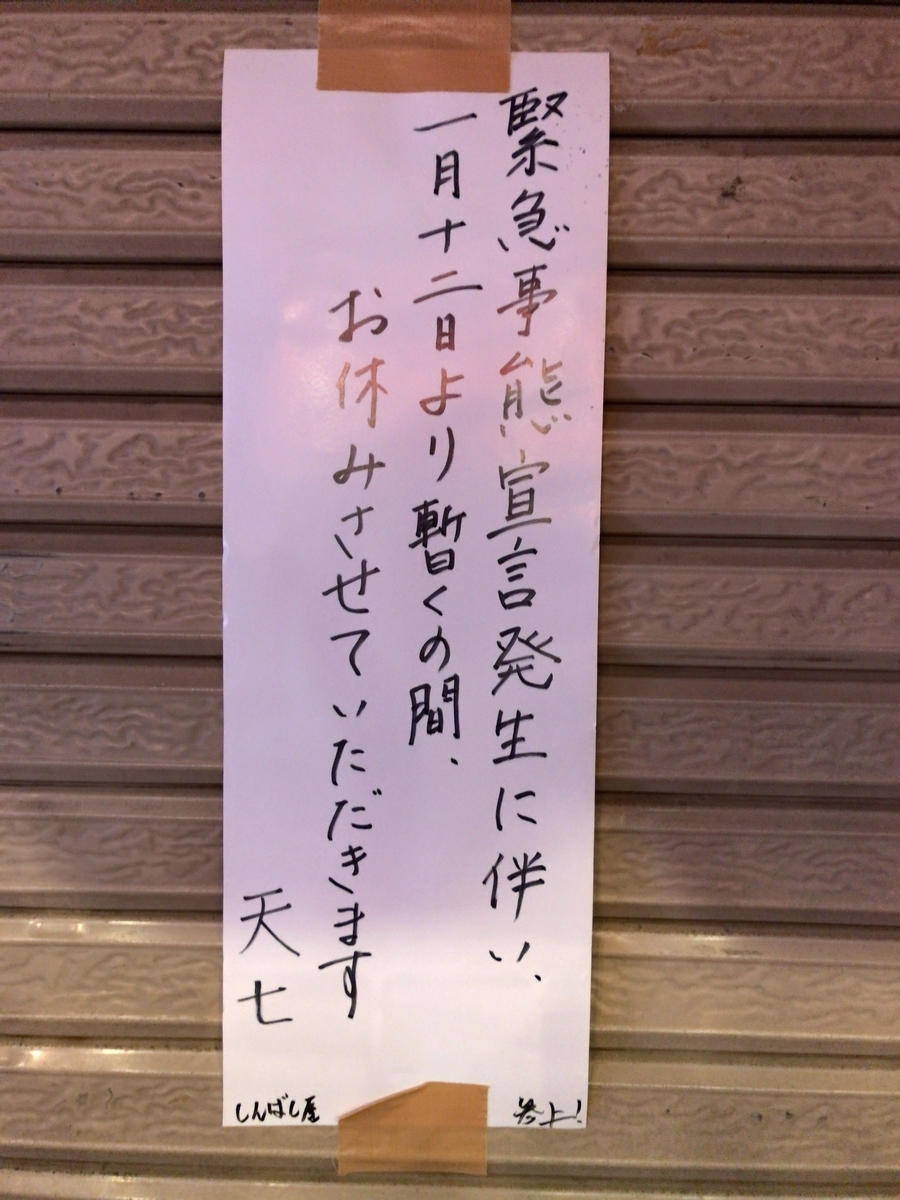 緊急事態宣言発生に伴い、
一月十二日より暫くの間、
お休みさせていただきます
天七
しんばし屋
参上!